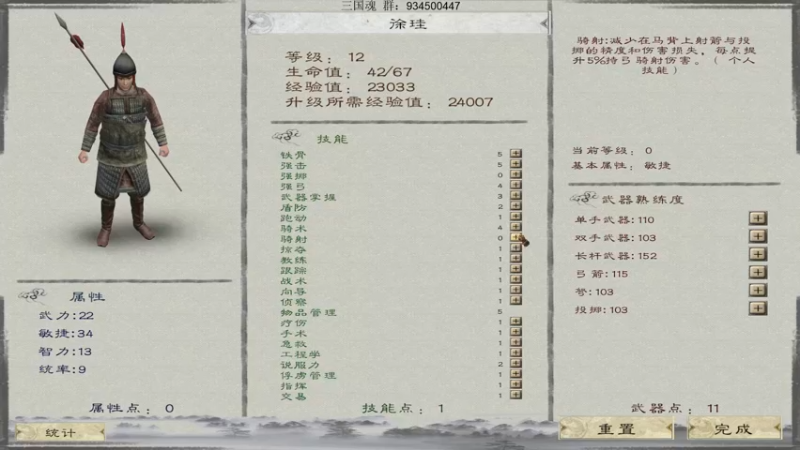 三国魂 群：934500447
徐珪
等级：12
生命值：42/67
经验值：23033
升级所需经验值：24007
技能
铁骨 5
强击 5
强掷 0
强弓 4
武器掌握 3
盾防 2
跑动 1
骑术 4
骑射 0
掠夺 1
教练 1
跟踪 1
战术 1
向导 1
侦察 1
物品管理 5
疗伤 1
手术 1
急救 1
工程学 1
说服力 2
俘虏管理 1
指挥 1
交易 1
技能点：1
属性
武力:22
敏捷:34
智力:13
统率:9
属性点：0
统计
骑射:减少在马背上射箭与投
掷的精度和伤害损失，每点提
升5%持弓骑射伤害。（个人
技能）
当前等级：0
基本属性：敏捷
武器熟练度
单手武器:110
双手武器:103
长杆武器:152
弓箭:115
弩:103
投掷:103
武器点：11
重置
完成